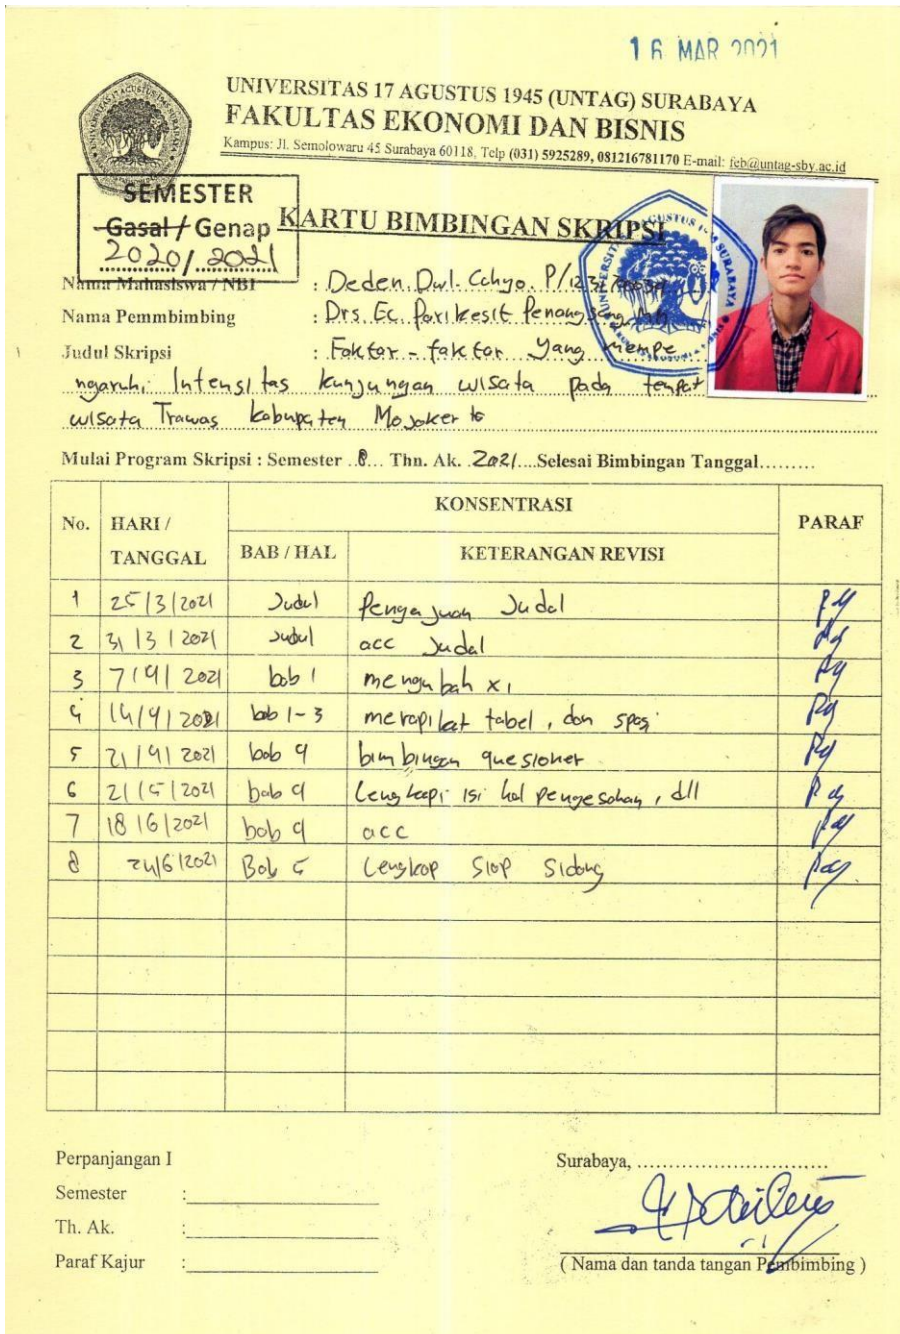 16 MAR 2021
UNIVERSITAS 17 AGUSTUS 1945 (UNTAG) SURABAYA
FAKULTAS EKONOMI DAN BISNIS
Kampus: Jl. Semolowaru 45 Surabaya 60118, Telp (031) 5925289, 081216781170 E-mail: feb@untag-sby.ac.id
SEMESTER
Gasal / Genap
2020/2021
KARTU BIMBINGAN SKRIPSI
Nama Mahasiswa / NBI : Deden Dwi Cahyo. P/
Nama Pemmbimbing : Drs Ec. Parikesit Penangsang
Judul Skripsi : Faktor - faktor yang mempe
ngaruhi Intensitas kunjungan wisata pada tempat
wisata Trawas kabupaten Mojokerto
Mulai Program Skripsi : Semester 8 Thn. Ak. 2021 Selesai Bimbingan Tanggal
No. HARI / TANGGAL KONSENTRASI PARAF
BAB / HAL KETERANGAN REVISI
1 25/3/2021 Judul Pengajuan Judul
2 31/3/2021 Judul acc Judul
3 7/4/2021 bab 1 mengubah x1
4 14/4/2021 bab 1-3 merapikat tabel, dan spasi
5 21/4/2021 bab 4 bimbingan quesioner
6 21/5/2021 bab 4 Lengkapi isi hal pengesahan, dll
7 18/6/2021 bab 4 acc
8 24/6/2021 Bab 5 Lengkap Siap Sidang
Perpanjangan I
Semester :
Th. Ak. :
Paraf Kajur :
Surabaya,
( Nama dan tanda tangan Pembimbing )